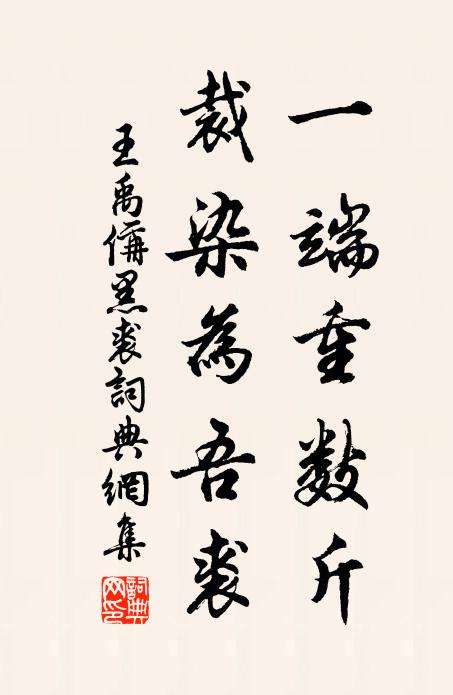 一端重數斤
裁染為吾裘
王禹偁黑裘詞典網集
詞典網印